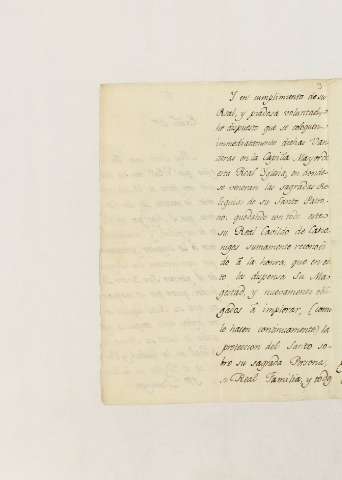 3
Y en cumplimiento de su
Real, y piadosa voluntad, e
he dispuesto que se coloquen
immediatamente dichas Van
deras en la Capilla Mayor de
esta Real Yglesia, en donde
se veneran las sagradas Re
liquias de su Santo Patro
no, quedando con todo este
su Real Cavildo de Cano
nigos sumamente reconoci
do à la honra, que en es
to la dispensa Su Ma
gestad, y nuevamente obli
gados à implorar, (como
lo hacen continuamente) la
proteccion del Santo so
bre su sagrada Persona,
su Real Familia, y todo